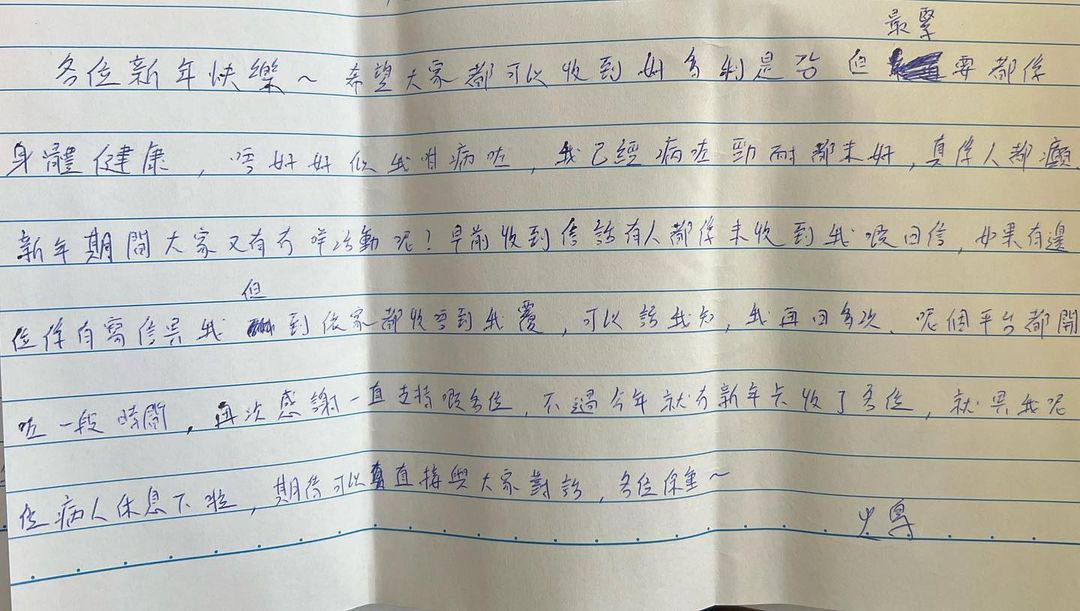 最緊
各位新年快樂~ 希望大家都可以收到好多利是啦 但 要都係
身體健康，唔好好似我咁病咗，我已經病咗勁耐都未好，真係人都癲。
新年期間大家又有冇咩活動呢！早前收到信話有人都係未收到我嘅回信，如果有邊
但
位係有寫信畀我 到依家都收唔到我覆，可以話我知，我再回多次。呢個平台都開
咗一段時間，再次感謝一直支持嘅各位，不過今年就冇新年卡收了各位，就畀我呢
位病人休息下啦，期待可以直接與大家對話，各位保重~